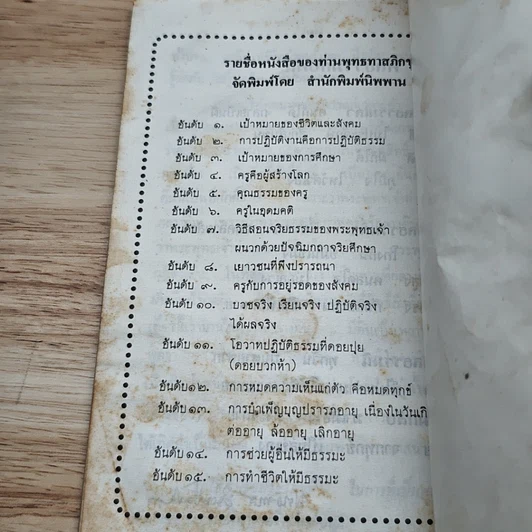 รายชื่อหนังสือของท่านพุทธทาสภิกขุ
จัดพิมพ์โดย สำนักพิมพ์นิพพาน
อันดับ ๑. เป้าหมายของชีวิตและสังคม
อันดับ ๒. การปฏิบัติงานคือการปฏิบัติธรรม
อันดับ ๓. เป้าหมายของการศึกษา
อันดับ ๔. ครูคือผู้สร้างโลก
อันดับ ๕. คุณธรรมของครู
อันดับ ๖. ครูในอุดมคติ
อันดับ ๗. วิธีสอนจริยธรรมของพระพุทธเจ้า
ผนวกด้วยปัจฉิมกถาจริยศึกษา
อันดับ ๘. เยาวชนที่พึงปรารถนา
อันดับ ๙. ครูกับการอยู่รอดของสังคม
อันดับ ๑๐. บวชจริง เรียนจริง ปฏิบัติจริง
ได้ผลจริง
อันดับ ๑๑. โอวาทปฏิบัติธรรมที่ดอยปุย
(ดอยบวกห้า)
อันดับ๑๒. การหมดความเห็นแก่ตัว คือหมดทุกข์
อันดับ๑๓. การบำเพ็ญบุญปรารภอายุ เนื่องในวันเกิ
ต่ออายุ ล้ออายุ เลิกอายุ
อันดับ๑๔. การช่วยผู้อื่นให้มีธรรมะ
อันดับ๑๕. การทำชีวิตให้มีธรรมะ